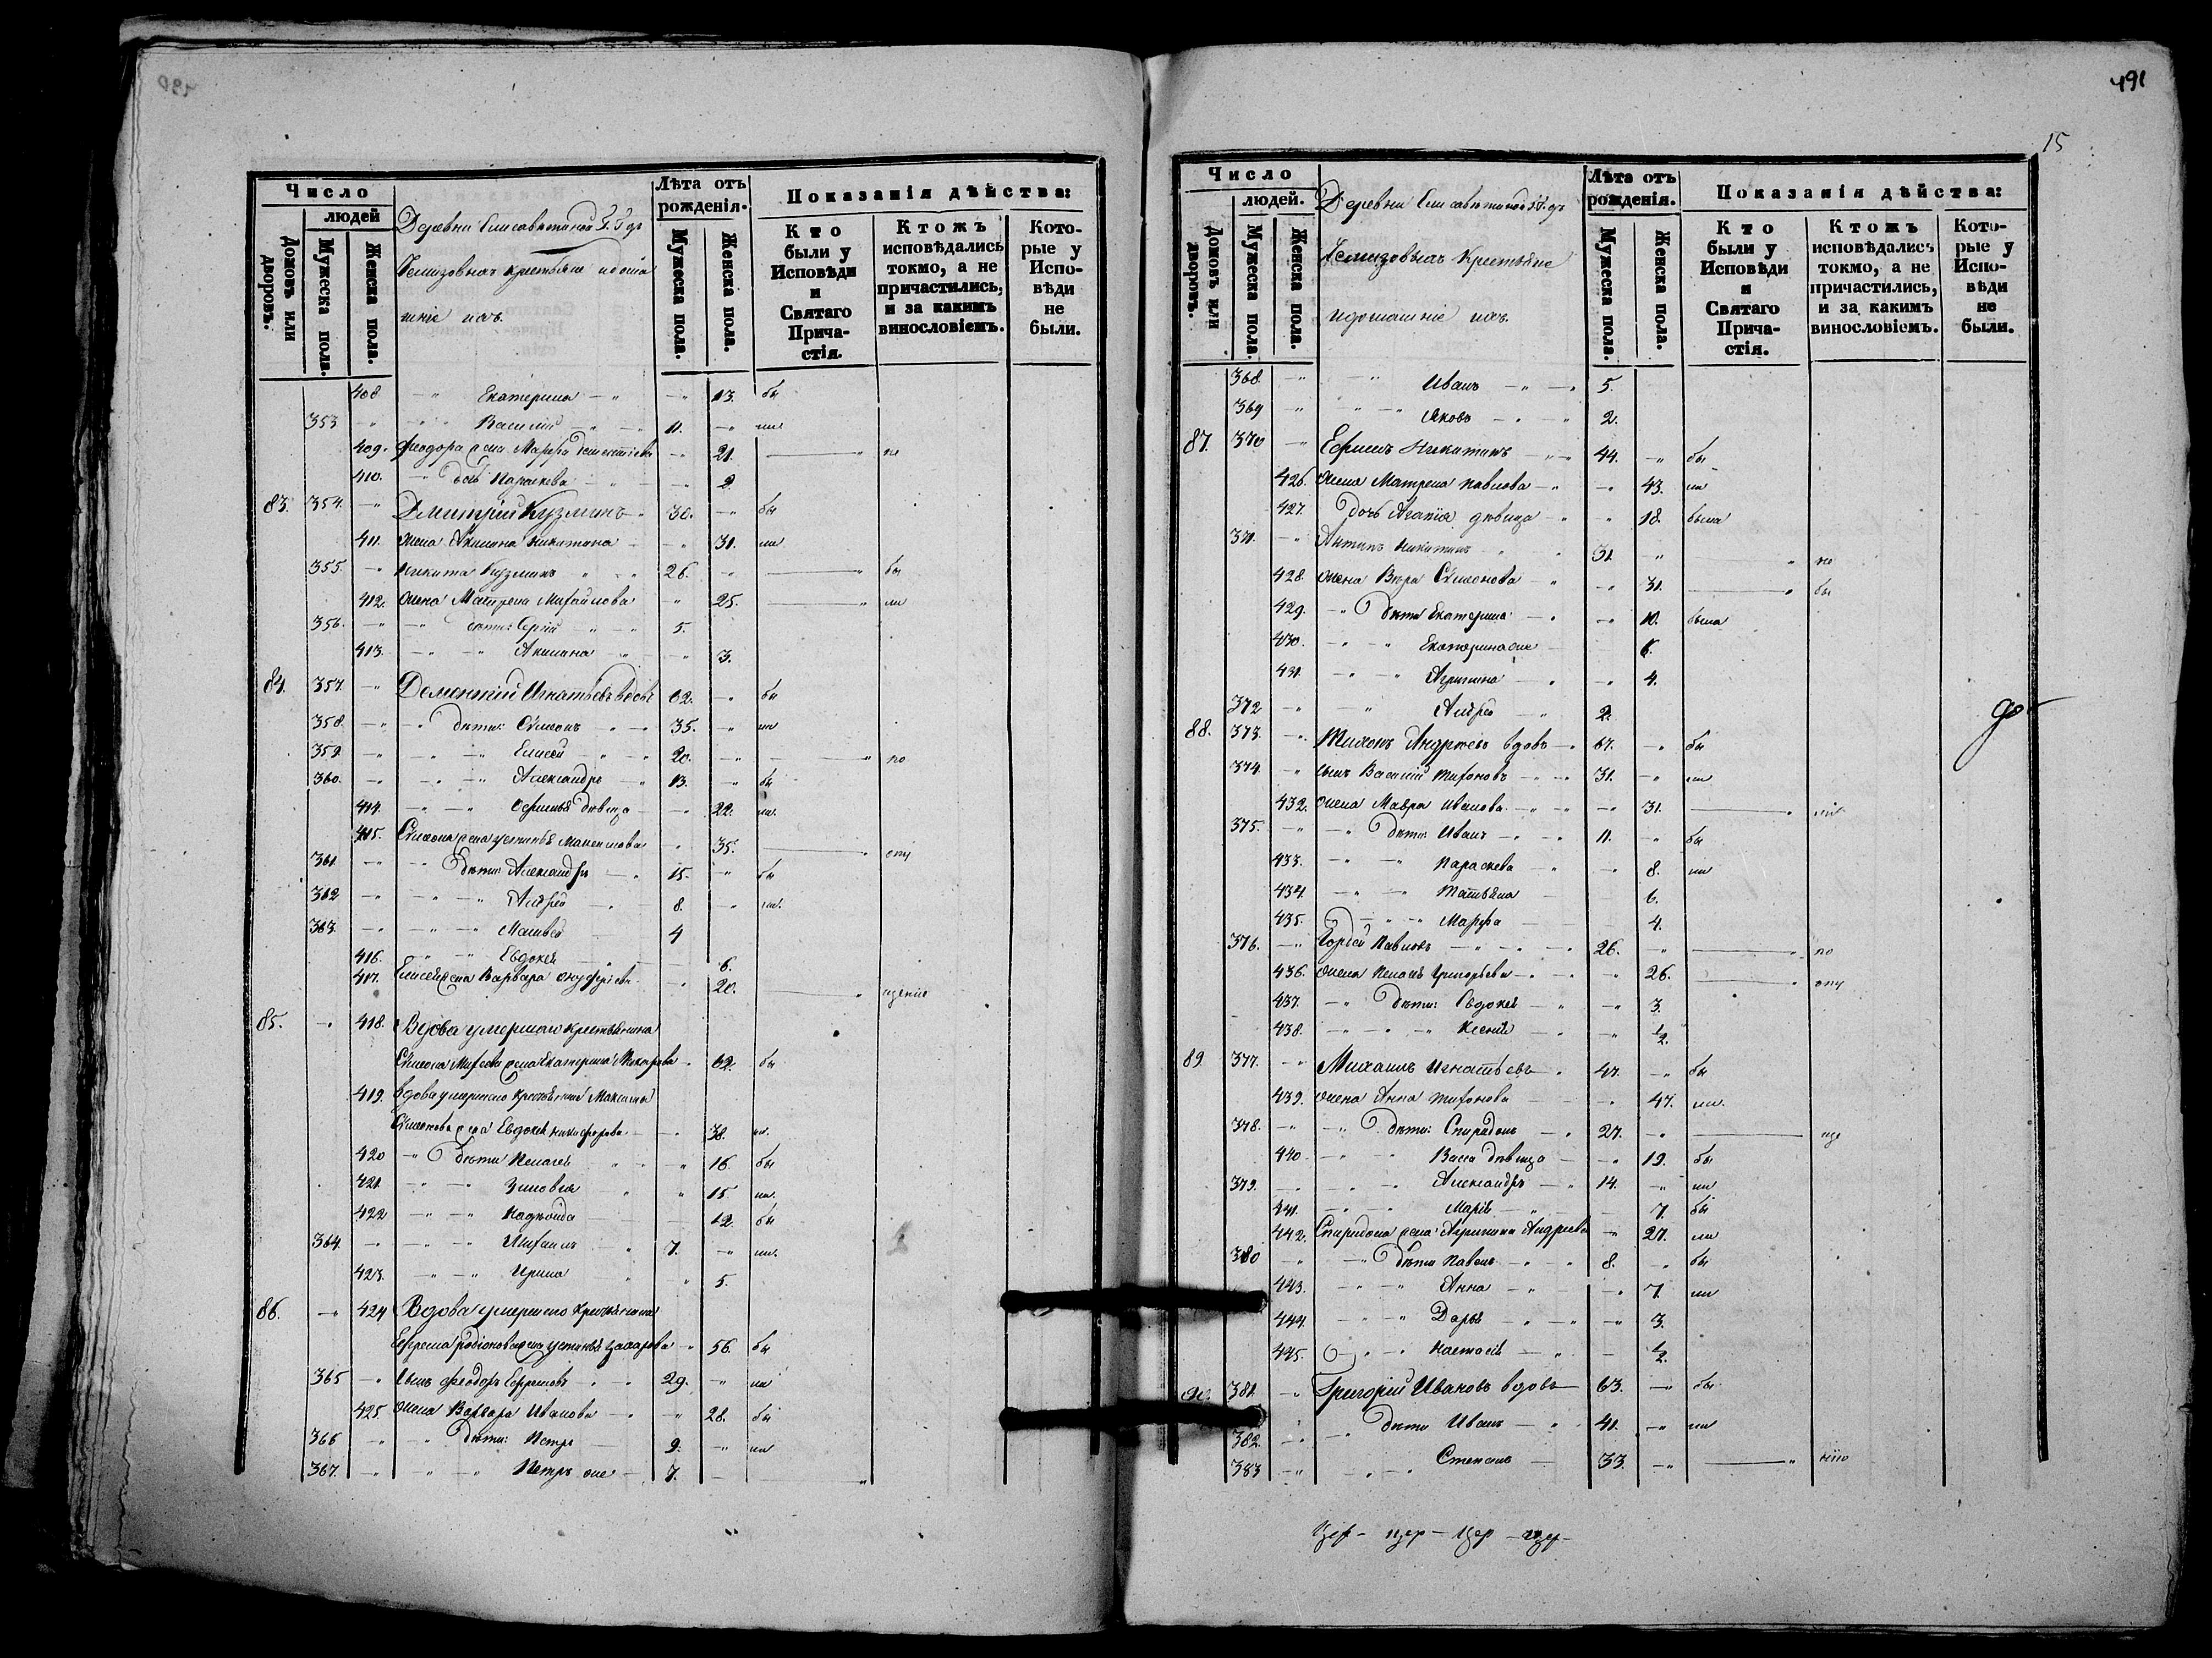 491
15
Число
людей
Домовъ или дворовъ.
Мужеска пола.
Женска пола.
Деревни Елисаветиной Г. Г дъ
крестьяне и домаш
ніе ихъ.
Лѣта отъ рожденія.
Мужеска пола.
Женска пола.
Показанія дѣйства:
Кто были у Исповѣди и Святаго Причастія.
Ктожъ исповѣдались токмо, а не причастились, и за какимъ винословіемъ.
Которые у Исповѣди не были.
408 Екатерина 13. бы
353 Василій 11. ли
409. Феодора жена Марфа 21. по
410. дочь Параскева 2
83. 354. Дмитрій Кузминъ 30. бы
411. жена Акилина Никитина 31. ли
355. Никита Кузминъ 26. бы
412. жена Матрена Михайлова 25. ли
356. дѣти: Сергій 5.
413. Акилина 3.
84. 357. Дементий Игнатьевъ вдовъ 62. бы
358. дѣти: Сѵмеонъ 35. ли
359. Елисей 20. по
360. Александръ 13. бы
414. Офимья дѣвица 22. ли
415. Сѵмеона жена Устинья Максимова 35. опу
361. дѣти: Александръ 15. бы
362 Андрей 8. ли.
363. Матвей 4
416. Евдокія 6.
417. Елисея жена Варвара Онуфріева 20. щенію
85. 418. Вдова умершаго крестьянина
Сѵмеона Михеева жена Екатерина Макарова 62. бы
419. вдова умершаго крестьянина Максима
Сѵмеонова жена Евдокія Никифорова 38. ли.
420 дѣти Пелагея 16. бы
421. Зиновія 15. ли.
422 Надѣжда 12. бы
364. Михаилъ 7. ли.
423. Ирина 5.
86. 424 Вдова умершаго крестьянина
Ефрема Родіонова жена Устинья Захарова 56. бы
365 сынъ Феодоръ Ефремовъ 29. ли
425. жена Варвара Иванова 28. бы
366 дѣти: Петръ 9. ли
367. Петръ же 7.
Число
людей.
Домовъ или дворовъ.
Мужеска пола.
Женска пола.
Деревни Елисаветиной Г. Г. дъ
крестьяне
и домашніе ихъ.
Лѣта отъ рожденія.
Мужеска пола.
Женска пола.
Показанія дѣйства:
Кто были у Исповѣди и Святаго Причастія.
Ктожъ исповѣдались токмо, а не причастились, и за какимъ винословіемъ.
Которые у Исповѣди не были.
368. Иванъ 5.
369 Яковъ 2.
87. 370 Ефимъ Никитинъ 44. бы
426. жена Матрена Павлова 43. ли
427. дочь Агапія дѣвица 18. была
371. Антипъ Никитинъ 31. по
428. жена Вѣра Сѵмеонова 31. бы
429. дѣти Екатерина 10. была
430. Екатерина же 6.
431. Агрипина 4.
372 Андрей 2.
88. 373. Тихонъ Андреевъ вдовъ 67. бы
374. сынъ Василій Тихоновъ 31. ли
432. жена Мавра Иванова 31.
375. дѣти: Иванъ 11. бы
433. Параскева 8. ли
434. Татьяна 6.
435. Марфа 4.
376. Гордей Павловъ 26. по
436. жена Пелагея Григорьева 26. опу
437. дѣти: Евдокія 3.
438. Ксенія ½.
89. 377. Михаилъ Игнатьевъ 47. бы
439. жена Анна Тихонова 47. ли.
378. дѣти: Спиридонъ 27. ще
440 Васса дѣвица 19. бы
379. Александръ 14. ли
441. Марія 7. бы
442. Спиридона жена Агрипина Андреева 27. ли
380 дѣти Павелъ 8. бы
443. Анна 7. ли
444. Дарья 3.
445. Настасія ½.
90. 381. Григорій Ивановъ вдовъ 63. бы
382. дѣти Иванъ 41. ли
383 Степанъ 33. нію